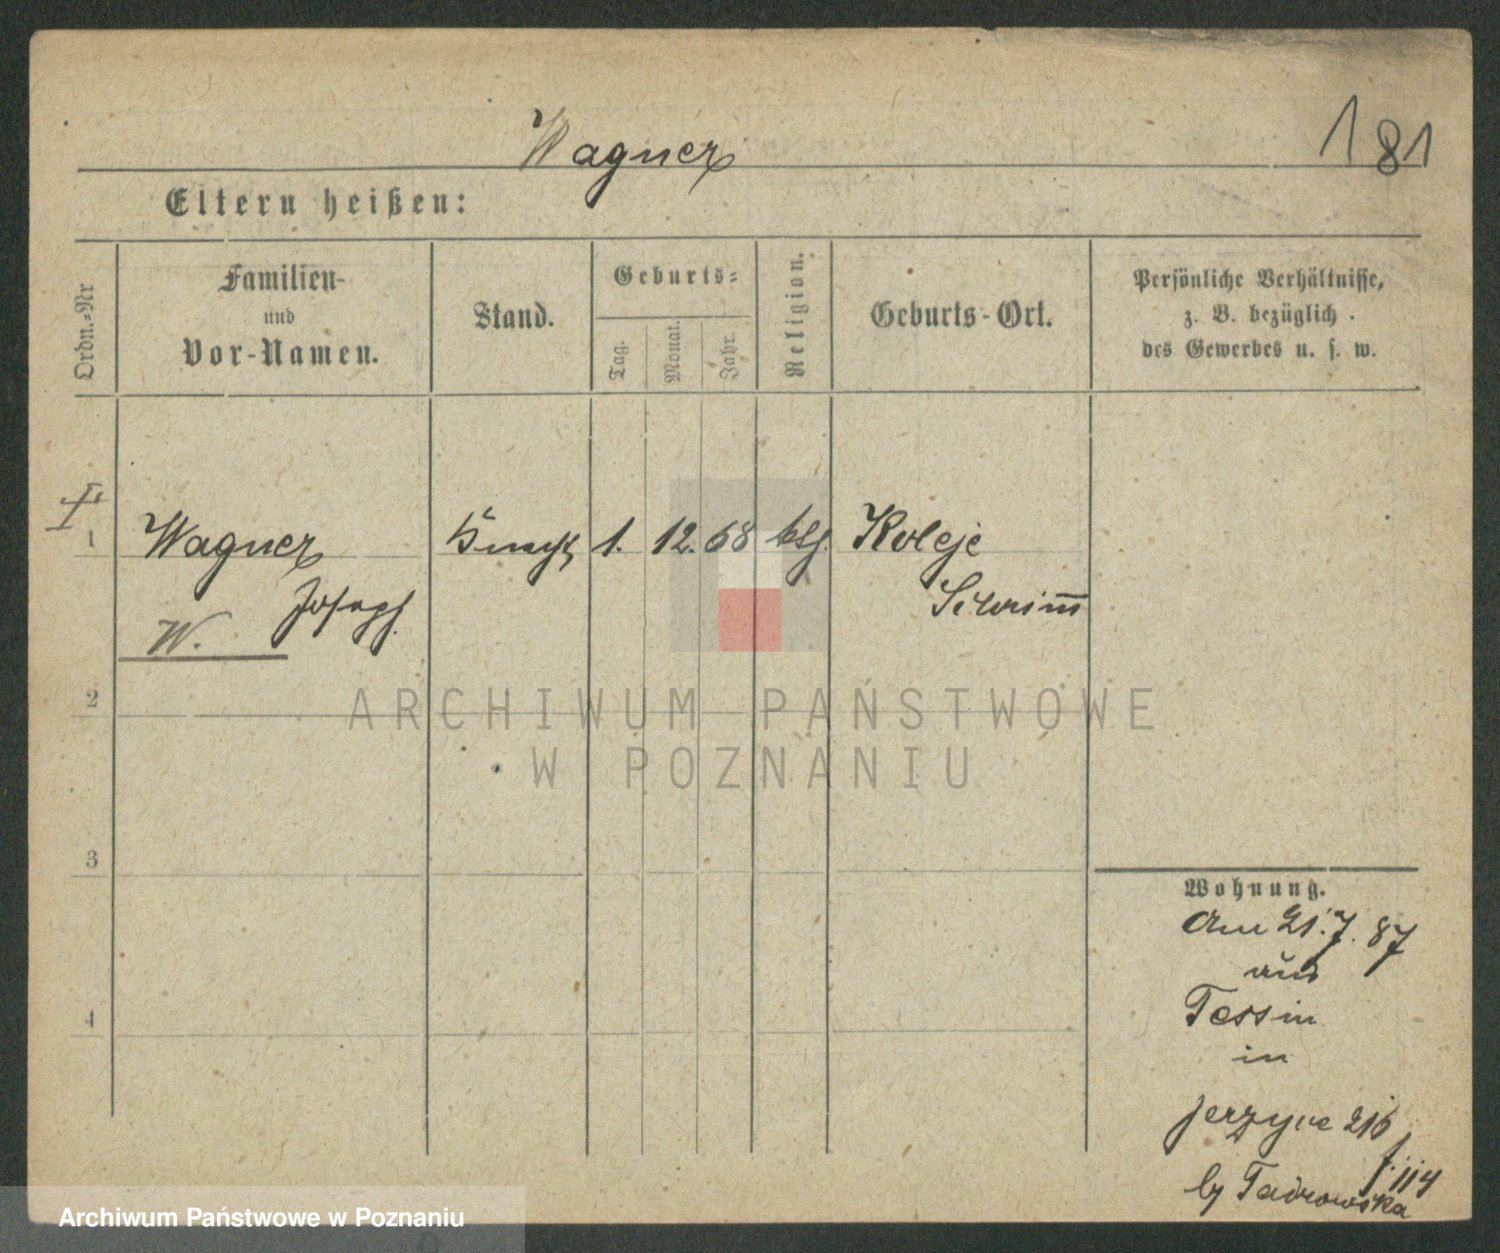 Wagner
181
Eltern heißen:
Ordn.=Nr
Familien-
und
Vor-Namen.
Stand.
Geburts=
Tag.
Monat.
Jahr.
Religion.
Geburts-Ort.
Persönliche Verhältnisse,
z. B. bezüglich
des Gewerbes u. s. w.
I
1 Wagner Knecht 1. 12. 68 Koleje
Joseph Schrim̅
W.
2
ARCHIWUM PAŃSTWOWE
W POZNANIU
3
Wohnung.
Am 21.7.87
aus
Tessin
4
in
Jerzyce 216
f. 114
by
Archiwum Państwowe w Poznaniu